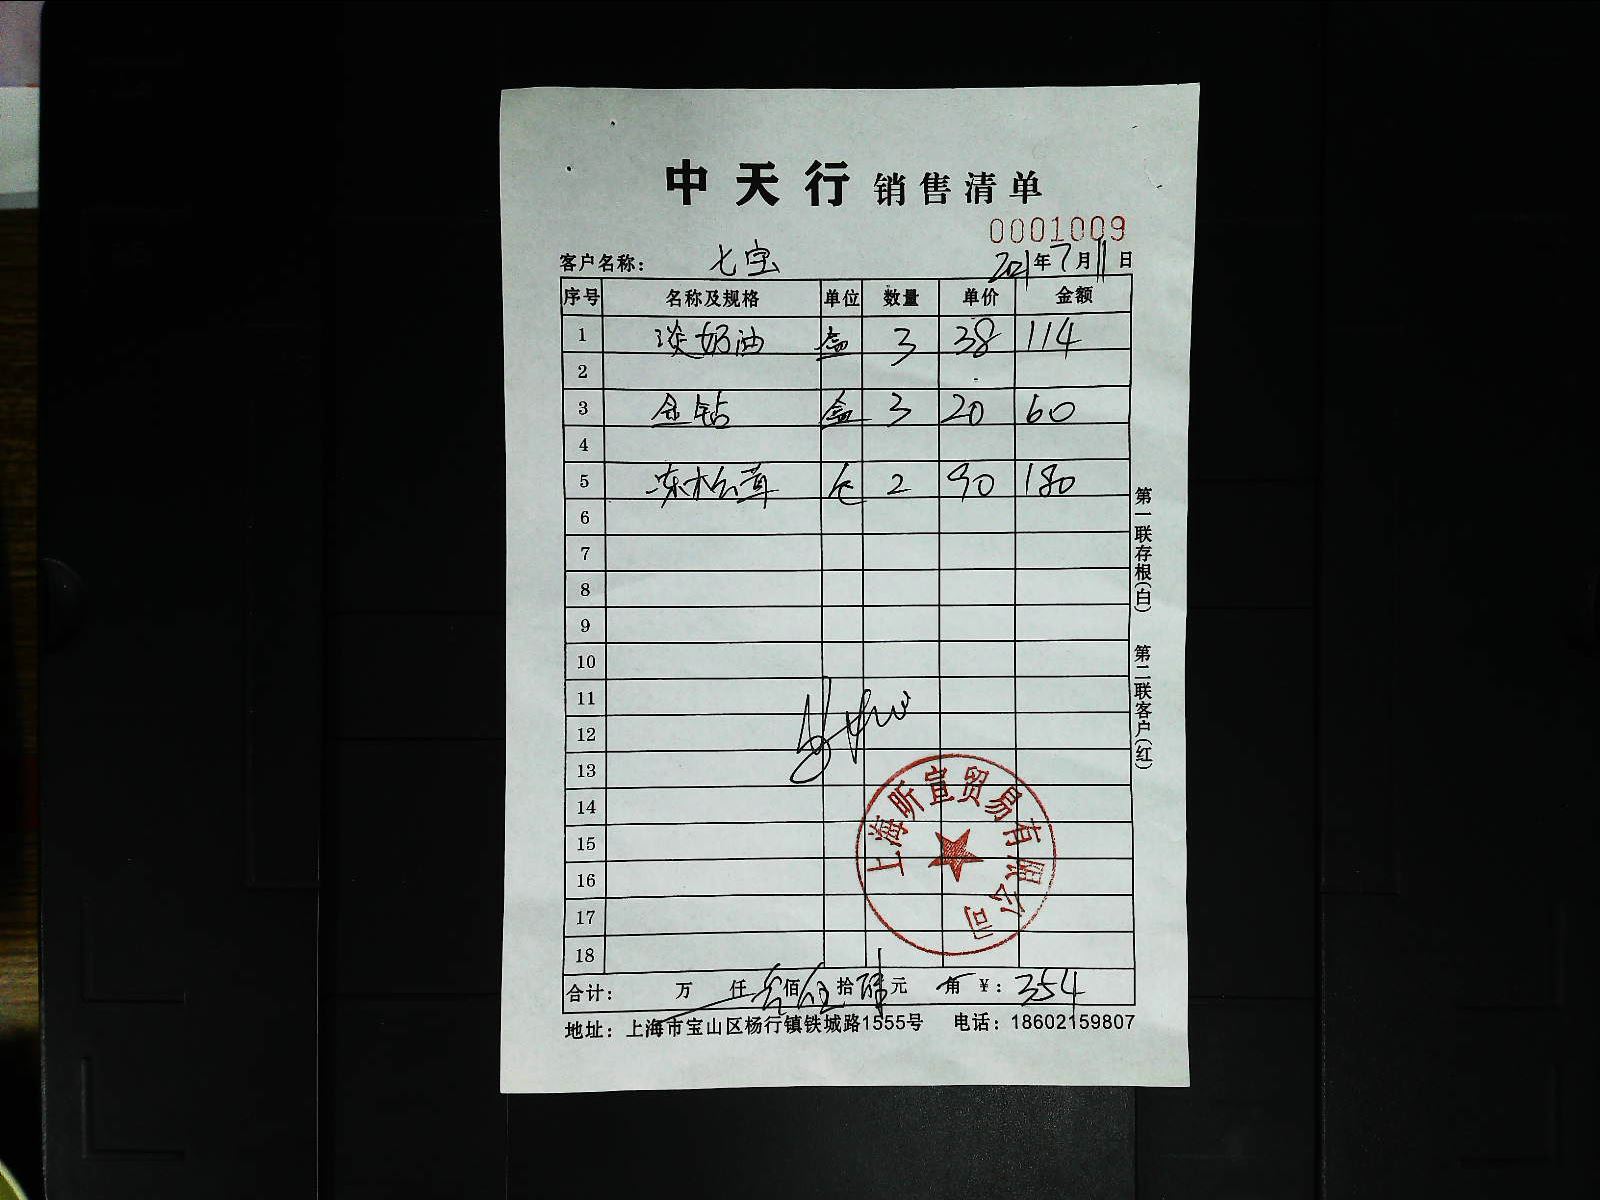 中天行 销售清单
0001009
客户名称: 七宝 2021年7月11日
序号 名称及规格 单位 数量 单价 金额
1 淡奶油 盒 3 38 114
2
3 金钻 盒 3 20 60
4
5 冻松茸 包 2 90 180
6
7
8
9
10
11
12
13
14
15
16
17
18
合计: 万 仟 叁佰 伍拾 肆元 角 ¥: 354
地址: 上海市宝山区杨行镇铁城路1555号 电话: 18602159807
第一联存根(白) 第二联客户(红)
上海昕宣贸易有限公司